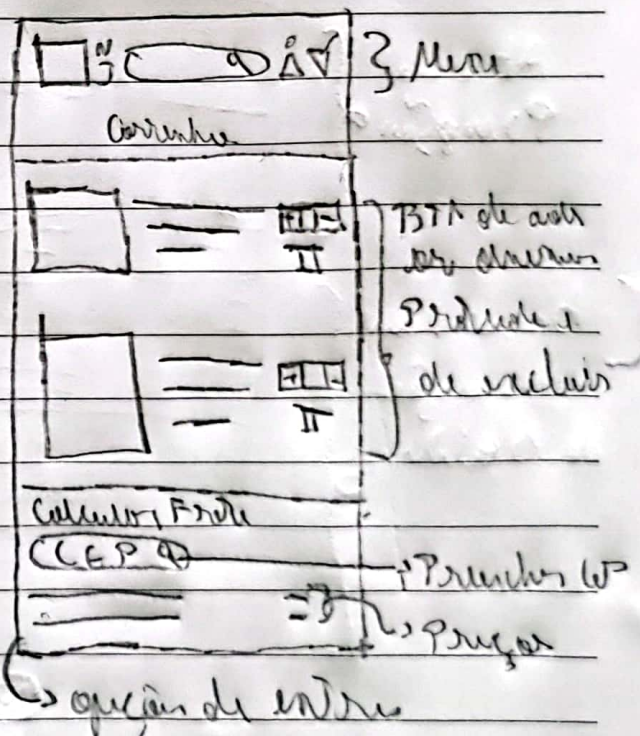 Menu
Carrinho
BTN de add
ou
Produto e
de excluir
Calcular Frete
CEP
Preencher CEP
Preços
opções de